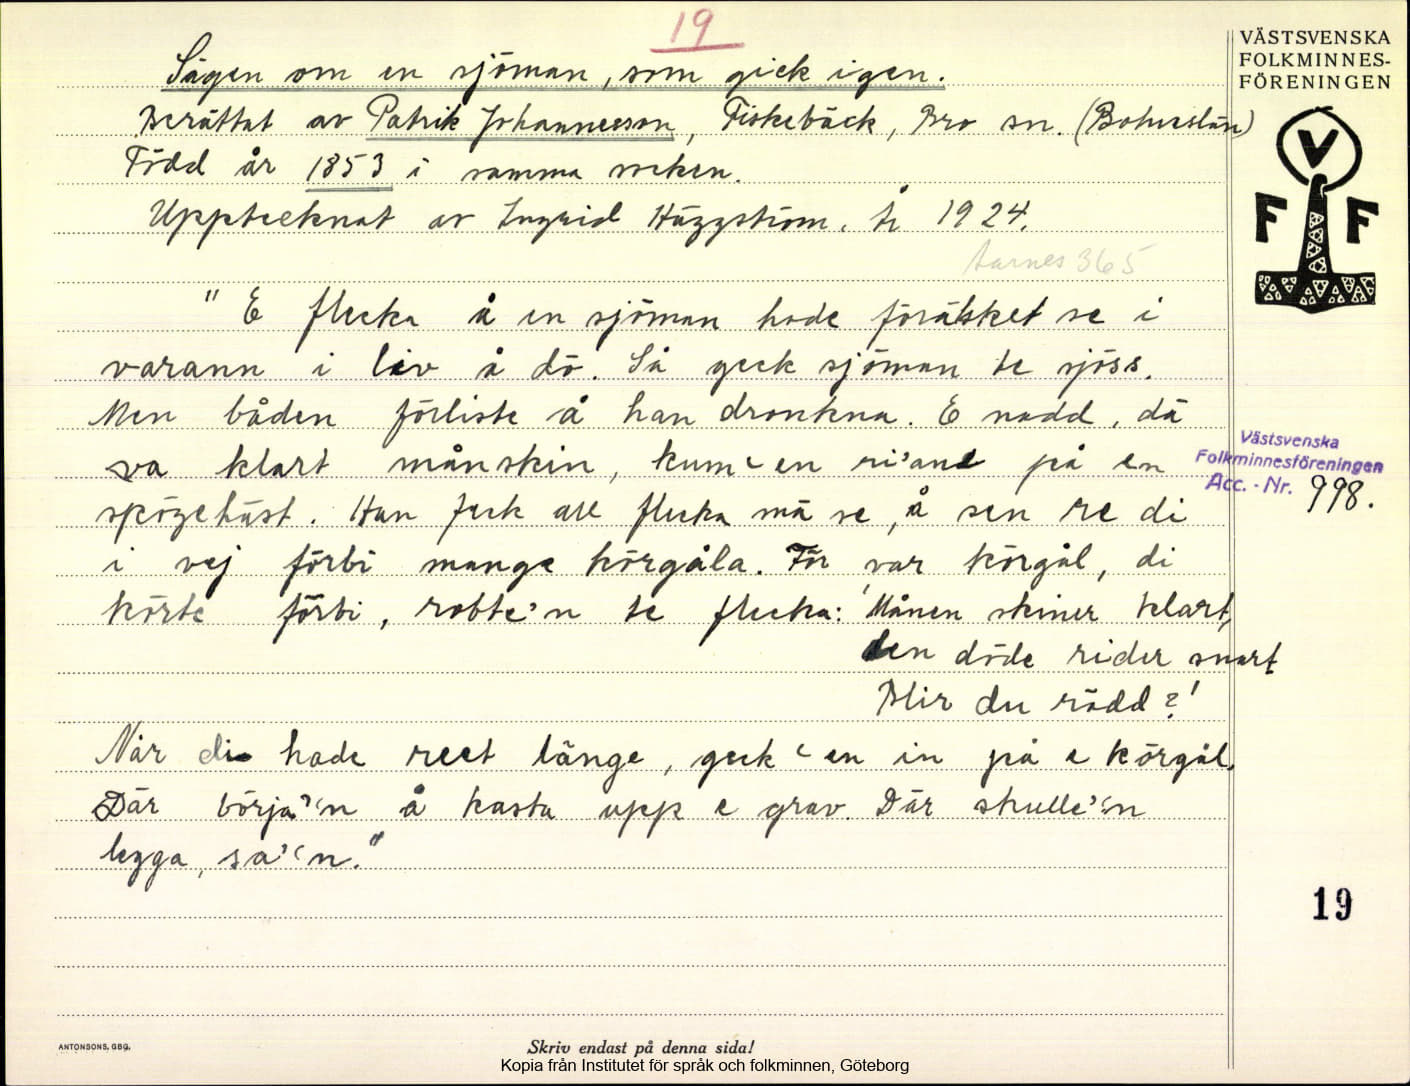 19
Sägen om en sjöman, som gick igen.
Berättat av Patrik Johannesson, Fiskebäck, Bro sn. (Bohuslän)
Född år 1853 i samma socken.
Upptecknat av Ingrid Häggström. år 1924.
Aarnes 365
"E flecka å en sjöman hade förälsket se i
varann i liv å dö. Så geck sjöman te sjöss.
Men båden förliste å han dronkna. E nadd, dä
va klart månskin, kum 'en ri'ane på en
spögehäst. Han feck att flecka mä se, å sen re di
i vej förbi mange körgåla. För var körgål, di
körte förbi, robte'n te flecka: 'Månen skiner klart,
den döde rider snart
Blir du rädd?'
När di hade reet länge, geck 'en in på e körgål.
Där börja''n å kasta upp e grav. Där skulle''n
legga, sa''n."
VÄSTSVENSKA
FOLKMINNES-
FÖRENINGEN
V
F F
Västsvenska
Folkminnesföreningen
Acc. - Nr. 998.
19
ANTONSONS, GBG.
Skriv endast på denna sida!
Kopia från Institutet för språk och folkminnen, Göteborg